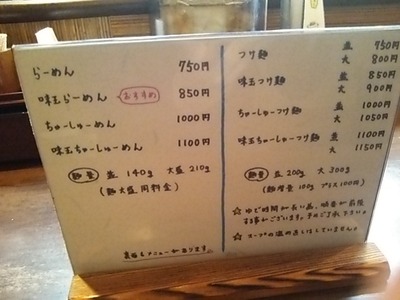 らーめん 750円
味玉らーめん おすすめ 850円
ちゃーしゅーめん 1000円
味玉ちゃーしゅーめん 1100円
麺量 並 140g 大盛 210g
(麺大盛 同料金)
裏面もメニューがあります。
つけ麺 並 750円
大 800円
味玉つけ麺 並 850円
大 900円
ちゃーしゅーつけ麺 並 1000円
大 1050円
味玉ちゃーしゅーつけ麺 並 1100円
大 1150円
麺量 並 200g 大 300g
(麺増量 100g プラス100円)
☆ ゆで時間が長い為、順番が前後
する事がございます。予めご了承下さい。
☆ スープの塩の直しはしていません。